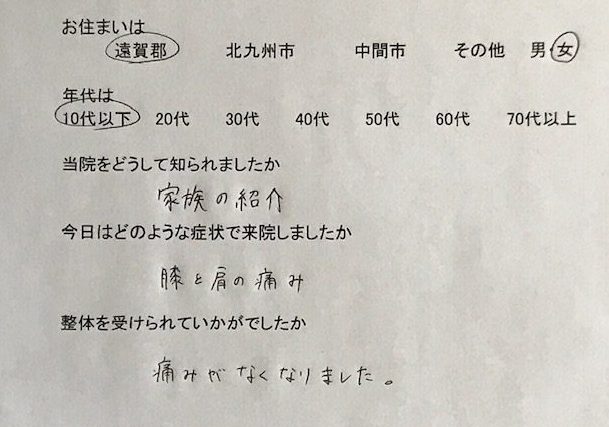 お住まいは
遠賀郡 北九州市 中間市 その他 男・女
年代は
10代以下 20代 30代 40代 50代 60代 70代以上
当院をどうして知られましたか
家族の紹介
今日はどのような症状で来院しましたか
膝と肩の痛み
整体を受けられていかがでしたか
痛みがなくなりました。